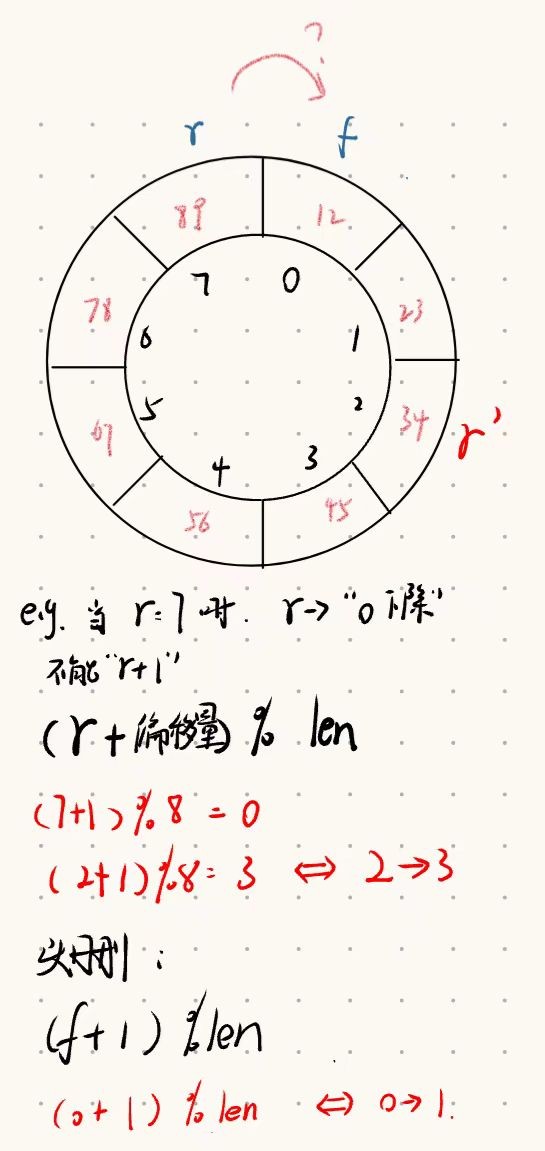 ?
r f
89 12
7 0
78 23
6 1
5 2
67 34 r'
4 3
56 45
e.g. 当 r=7时. r→"0下标"
不能"r+1"
(r+偏移量) % len
(7+1)%8=0
(2+1)%8=3 ⇔ 2→3
头删:
(f+1)%len
(0+1)%len ⇔ 0→1.